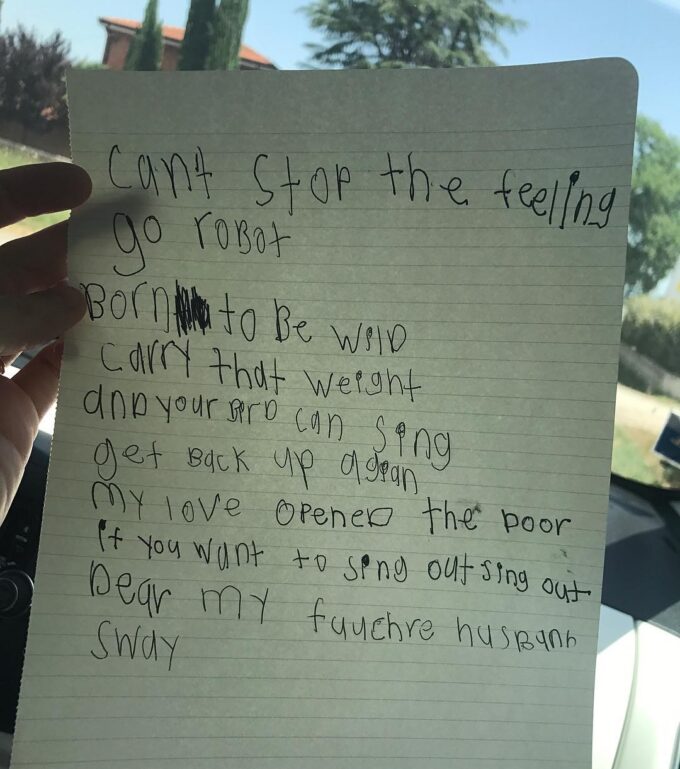 cant stop the feeling
go roBot
BORN to Be WilD
carry that weight
anD your BirD can sing
get Back up agian
My love openeD the Door
if you want to sing out sing out
Dear my fuuchre husBanD
sway